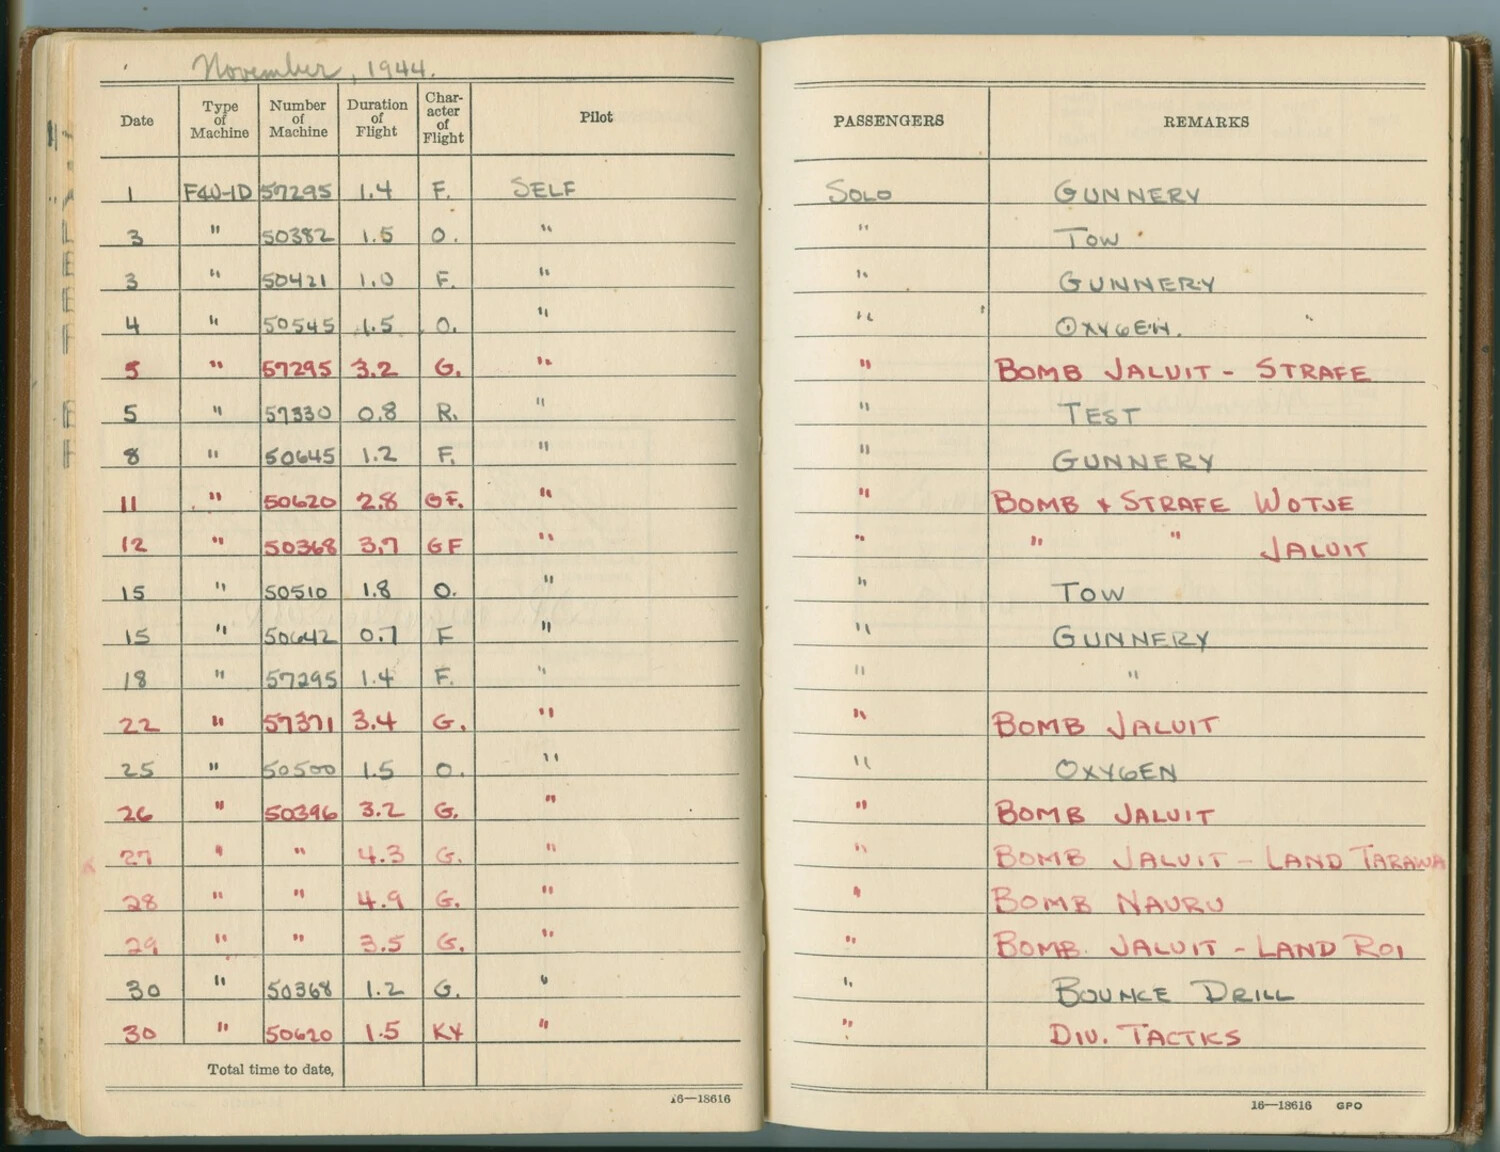 November, 1944.
Date Type of Machine Number of Machine Duration of Flight Char-acter of Flight Pilot PASSENGERS REMARKS
1 F4U-1D 57295 1.4 F. SELF SOLO GUNNERY
3 " 50382 1.5 O. " " TOW
3 " 50421 1.0 F. " " GUNNERY
4 " 50545 1.5 O. " " OXYGEN. "
5 " 57295 3.2 G. " " BOMB JALUIT - STRAFE
5 " 57330 0.8 R. " " TEST
8 " 50645 1.2 F. " " GUNNERY
11 " 50620 2.8 GF. " " BOMB + STRAFE WOTJE
12 " 50368 3.7 GF " " " " JALUIT
15 " 50510 1.8 O. " " TOW
15 " 50642 0.7 F " " GUNNERY
18 " 57295 1.4 F. " " "
22 " 57371 3.4 G. " " BOMB JALUIT
25 " 50500 1.5 O. " " OXYGEN
26 " 50396 3.2 G. " " BOMB JALUIT
27 " " 4.3 G. " " BOMB JALUIT - LAND TARAWA
28 " " 4.9 G. " " BOMB NAURU
29 " " 3.5 G. " " BOMB. JALUIT - LAND ROI
30 " 50368 1.2 G. " " BOUNCE DRILL
30 " 50620 1.5 KX " " DIV. TACTICS
Total time to date,
16—18616
16—18616 GPO